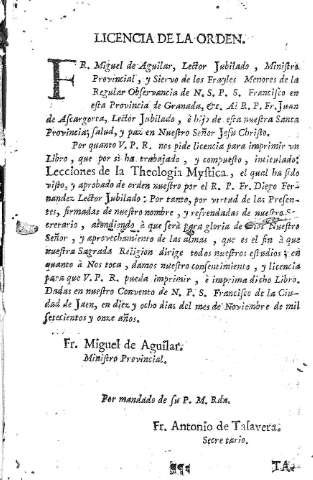 LICENCIA DE LA ORDEN.
FR. Miguel de Aguilar, Lector Jubilado, Ministro
Provincial, y Siervo de los Frayles Menores de la
Regular Observancia de N. S. P. S. Francisco en
esta Provincia de Granada, &c. Al R. P. Fr. Juan
de Ascargorta, Lector Jubilado, è hijo de esta nuestra Santa
Provincia, salud, y paz en Nuestro Señor Jesu Christo.
Por quanto V. P. R. nos pide licencia para imprimir un
Libro, que por si ha trabajado, y compuesto, intitulado:
Lecciones de la Theologia Mystica, el qual ha sido
visto, y aprobado de orden nuestro por el R. P. Fr. Diego Fer-
nandez Lector Jubilado: Por tanto, por virtud de las Presen-
tes, firmadas de nuestro nombre, y refrendadas de nuestro Se-
cretario, atendiendo à que serà para gloria de Nuestro
Señor, y aprovechamiento de las almas, que es el fin à que
nuestra Sagrada Religion dirige todos nuestros estudios; en
quanto à Nos toca, damos nuestro consentimiento, y licencia
para que V. P. R. pueda imprimir, è imprima dicho Libro.
Dadas en nuestro Convento de N. P. S. Francisco de la Ciu-
dad de Jaen, en diez y ocho dias del mes de Noviembre de mil
setecientos y onze años.
Fr. Miguel de Aguilar.
Ministro Provincial.
Por mandado de su P. M. Rda.
Fr. Antonio de Talavera.
Secretario.
TA-